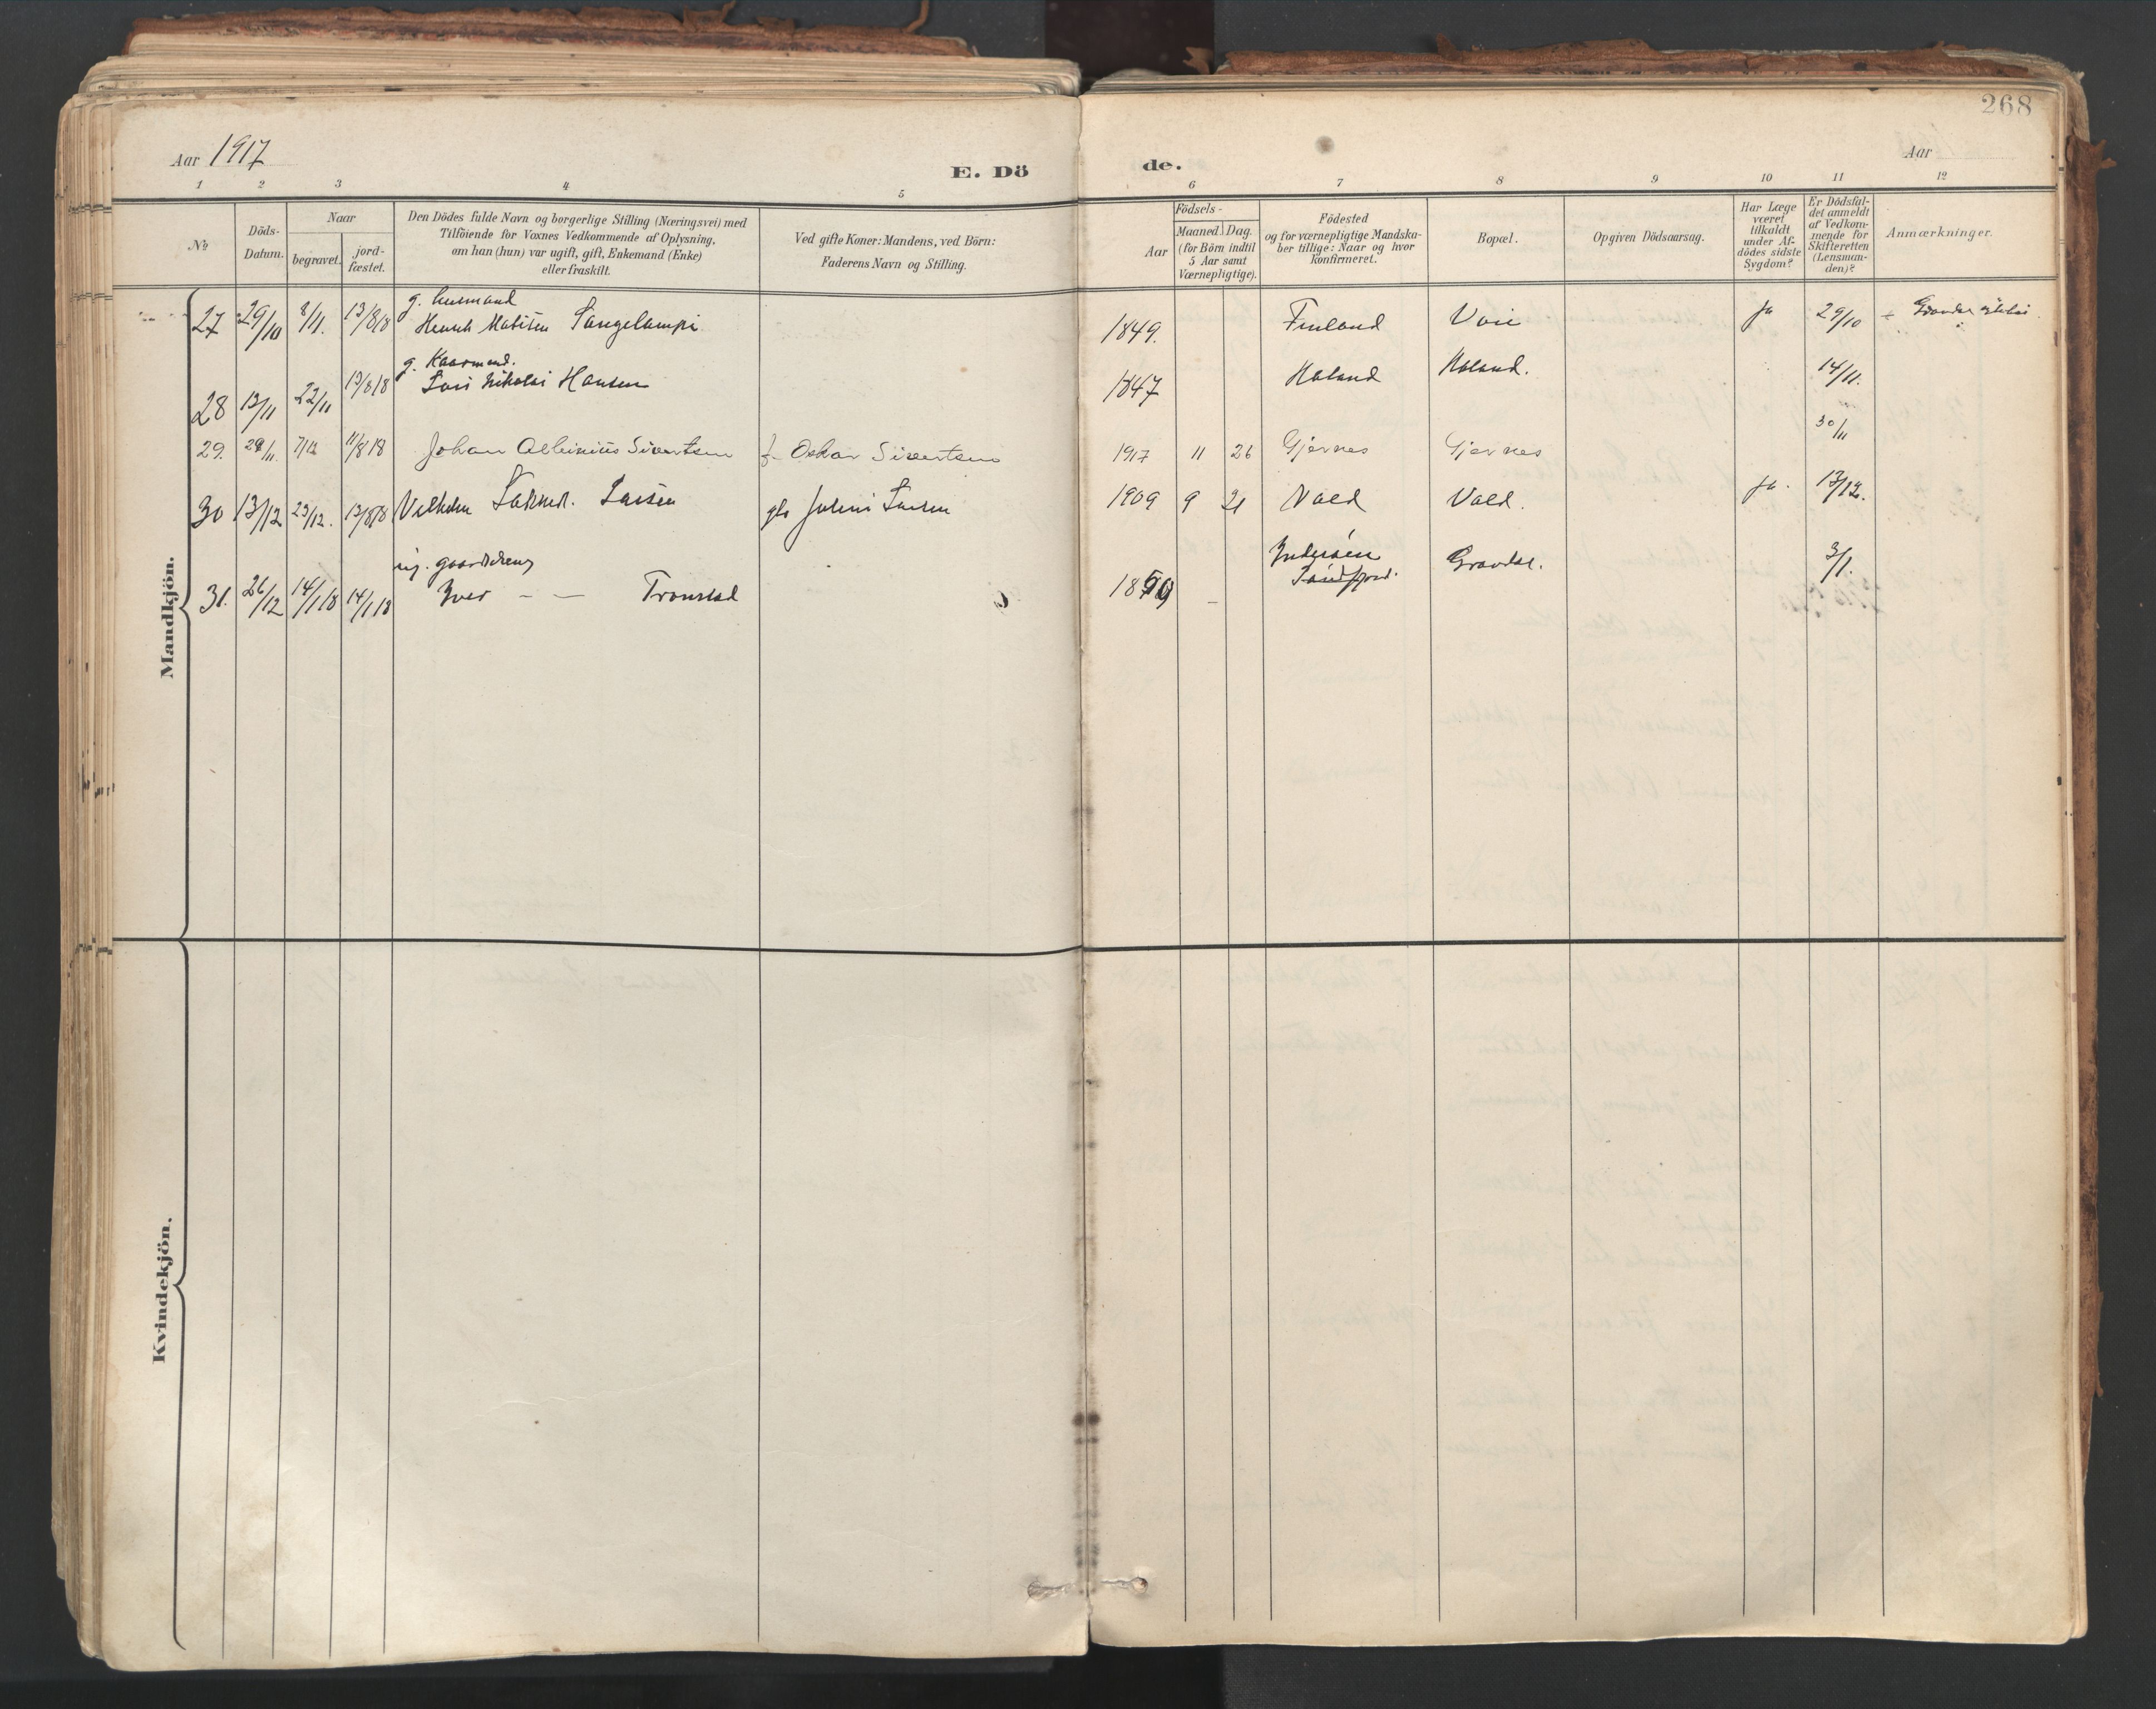 268
Aar 1917
E. Dö
de.
Aar
1 2 3 4 5 6 7 8 9 10 11 12
No
Döds-
Datum.
Naar
begravet.
jord-
fæstet.
Den Dödes fulde Navn og borgerlige Stilling (Næringsvei) med
Tilföiende for Voxnes Vedkommende af Oplysning,
om han (hun) var ugift, gift, Enkemand (Enke)
eller fraskilt.
Ved gifte Koner: Mandens, ved Börn:
Faderens Navn og Stilling.
Födsels-
Aar
Maaned. Dag.
(for Börn indtil
5 Aar samt
Værnepligtige).
Födested
og for værnepligtige Mandska-
ber tillige: Naar og hvor
Konfirmeret.
Bopæl.
Opgiven Dödsaarsag.
Har Læge
været
tilkaldt
under Af-
dödes sidste
Sygdom?
Er Dödsfal-
det anmeldt
af Vedkom-
mende for
Skifteretten
(Lensman-
den)?
Anmærkninger.
Mandkjön.
g. husmand
27 29/10 8/11. 13/8 18 Henrik Matisen 1849. Finland Voie ja 29/10
g. Kaarmand.
28 13/11 22/11 13/8 18 Nikolai Hansen 1847 Haland Haland. 14/11.
29. 29/11. 7/12 11/8 18 Johan Albinius Sivertsen f. Oskar Sivertsen 1917 11 26 Gjernes Gjernes 30/11
30 13/12 23/12. 13/8 18 Vilhelm Larsen Larsen 1909 9 21 Vold Vold. ja. 13/12.
ug. gaardsdreng
31. 26/12 14/1 18 14/1 18 Iver — — Tronstad Inderøen Gravdal. 3/1.
Kvindekjön.